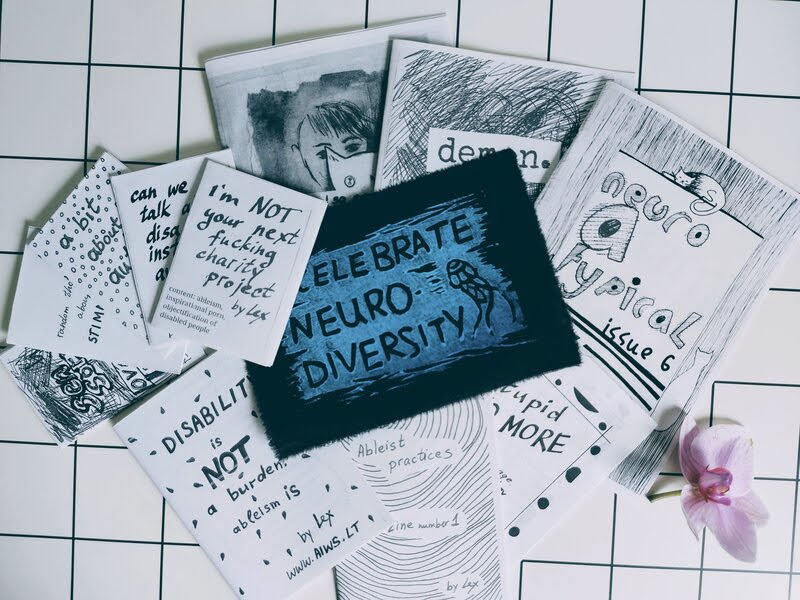 demon.
neuro
a
typical
issue 6
a bit
about
STIMI
can we
talk
I'm NOT
your next
fucking
charity
project
by Lex
content: ableism,
inspirational porn,
objectification of
disabled people
CELEBRATE
NEURO-
DIVERSITY
DISABILIT
is
NOT
a burden.
ableism is
by Lex
WWW.AIWS.LT
Ableist
practices
zine number 1
by Lex
MORE